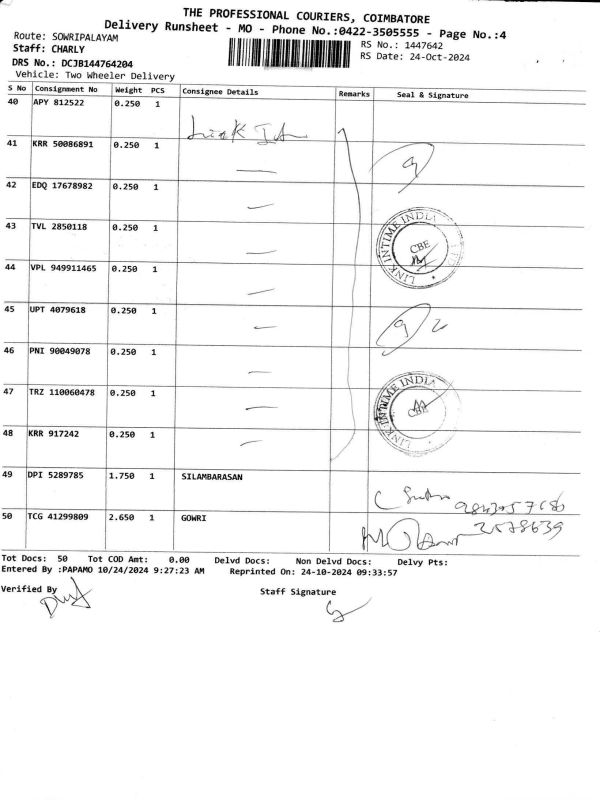 THE PROFESSIONAL COURIERS, COIMBATORE
Delivery Runsheet - MO - Phone No.:0422-3505555 - Page No.:4
Route: SOWRIPALAYAM
RS No.: 1447642
Staff: CHARLY
RS Date: 24-Oct-2024
DRS No.: DCJB144764204
Vehicle: Two Wheeler Delivery
S No Consignment No Weight PCS Consignee Details Remarks Seal & Signature
40 APY 812522 0.250 1
Link
41 KRR 50086891 0.250 1
9
42 EDQ 17678982 0.250 1
43 TVL 2850118 0.250 1
LINK INTIME INDIA
CBE
44 VPL 949911465 0.250 1
45 UPT 4079618 0.250 1
92
46 PNI 90049078 0.250 1
47 TRZ 110060478 0.250 1
LINK INTIME INDIA
48 KRR 917242 0.250 1
49 DPI 5289785 1.750 1 SILAMBARASAN
50 TCG 41299809 2.650 1 GOWRI
Tot Docs: 50 Tot COD Amt: 0.00 Delvd Docs: Non Delvd Docs: Delvy Pts:
Entered By :PAPAMO 10/24/2024 9:27:23 AM Reprinted On: 24-10-2024 09:33:57
Verified By
Staff Signature